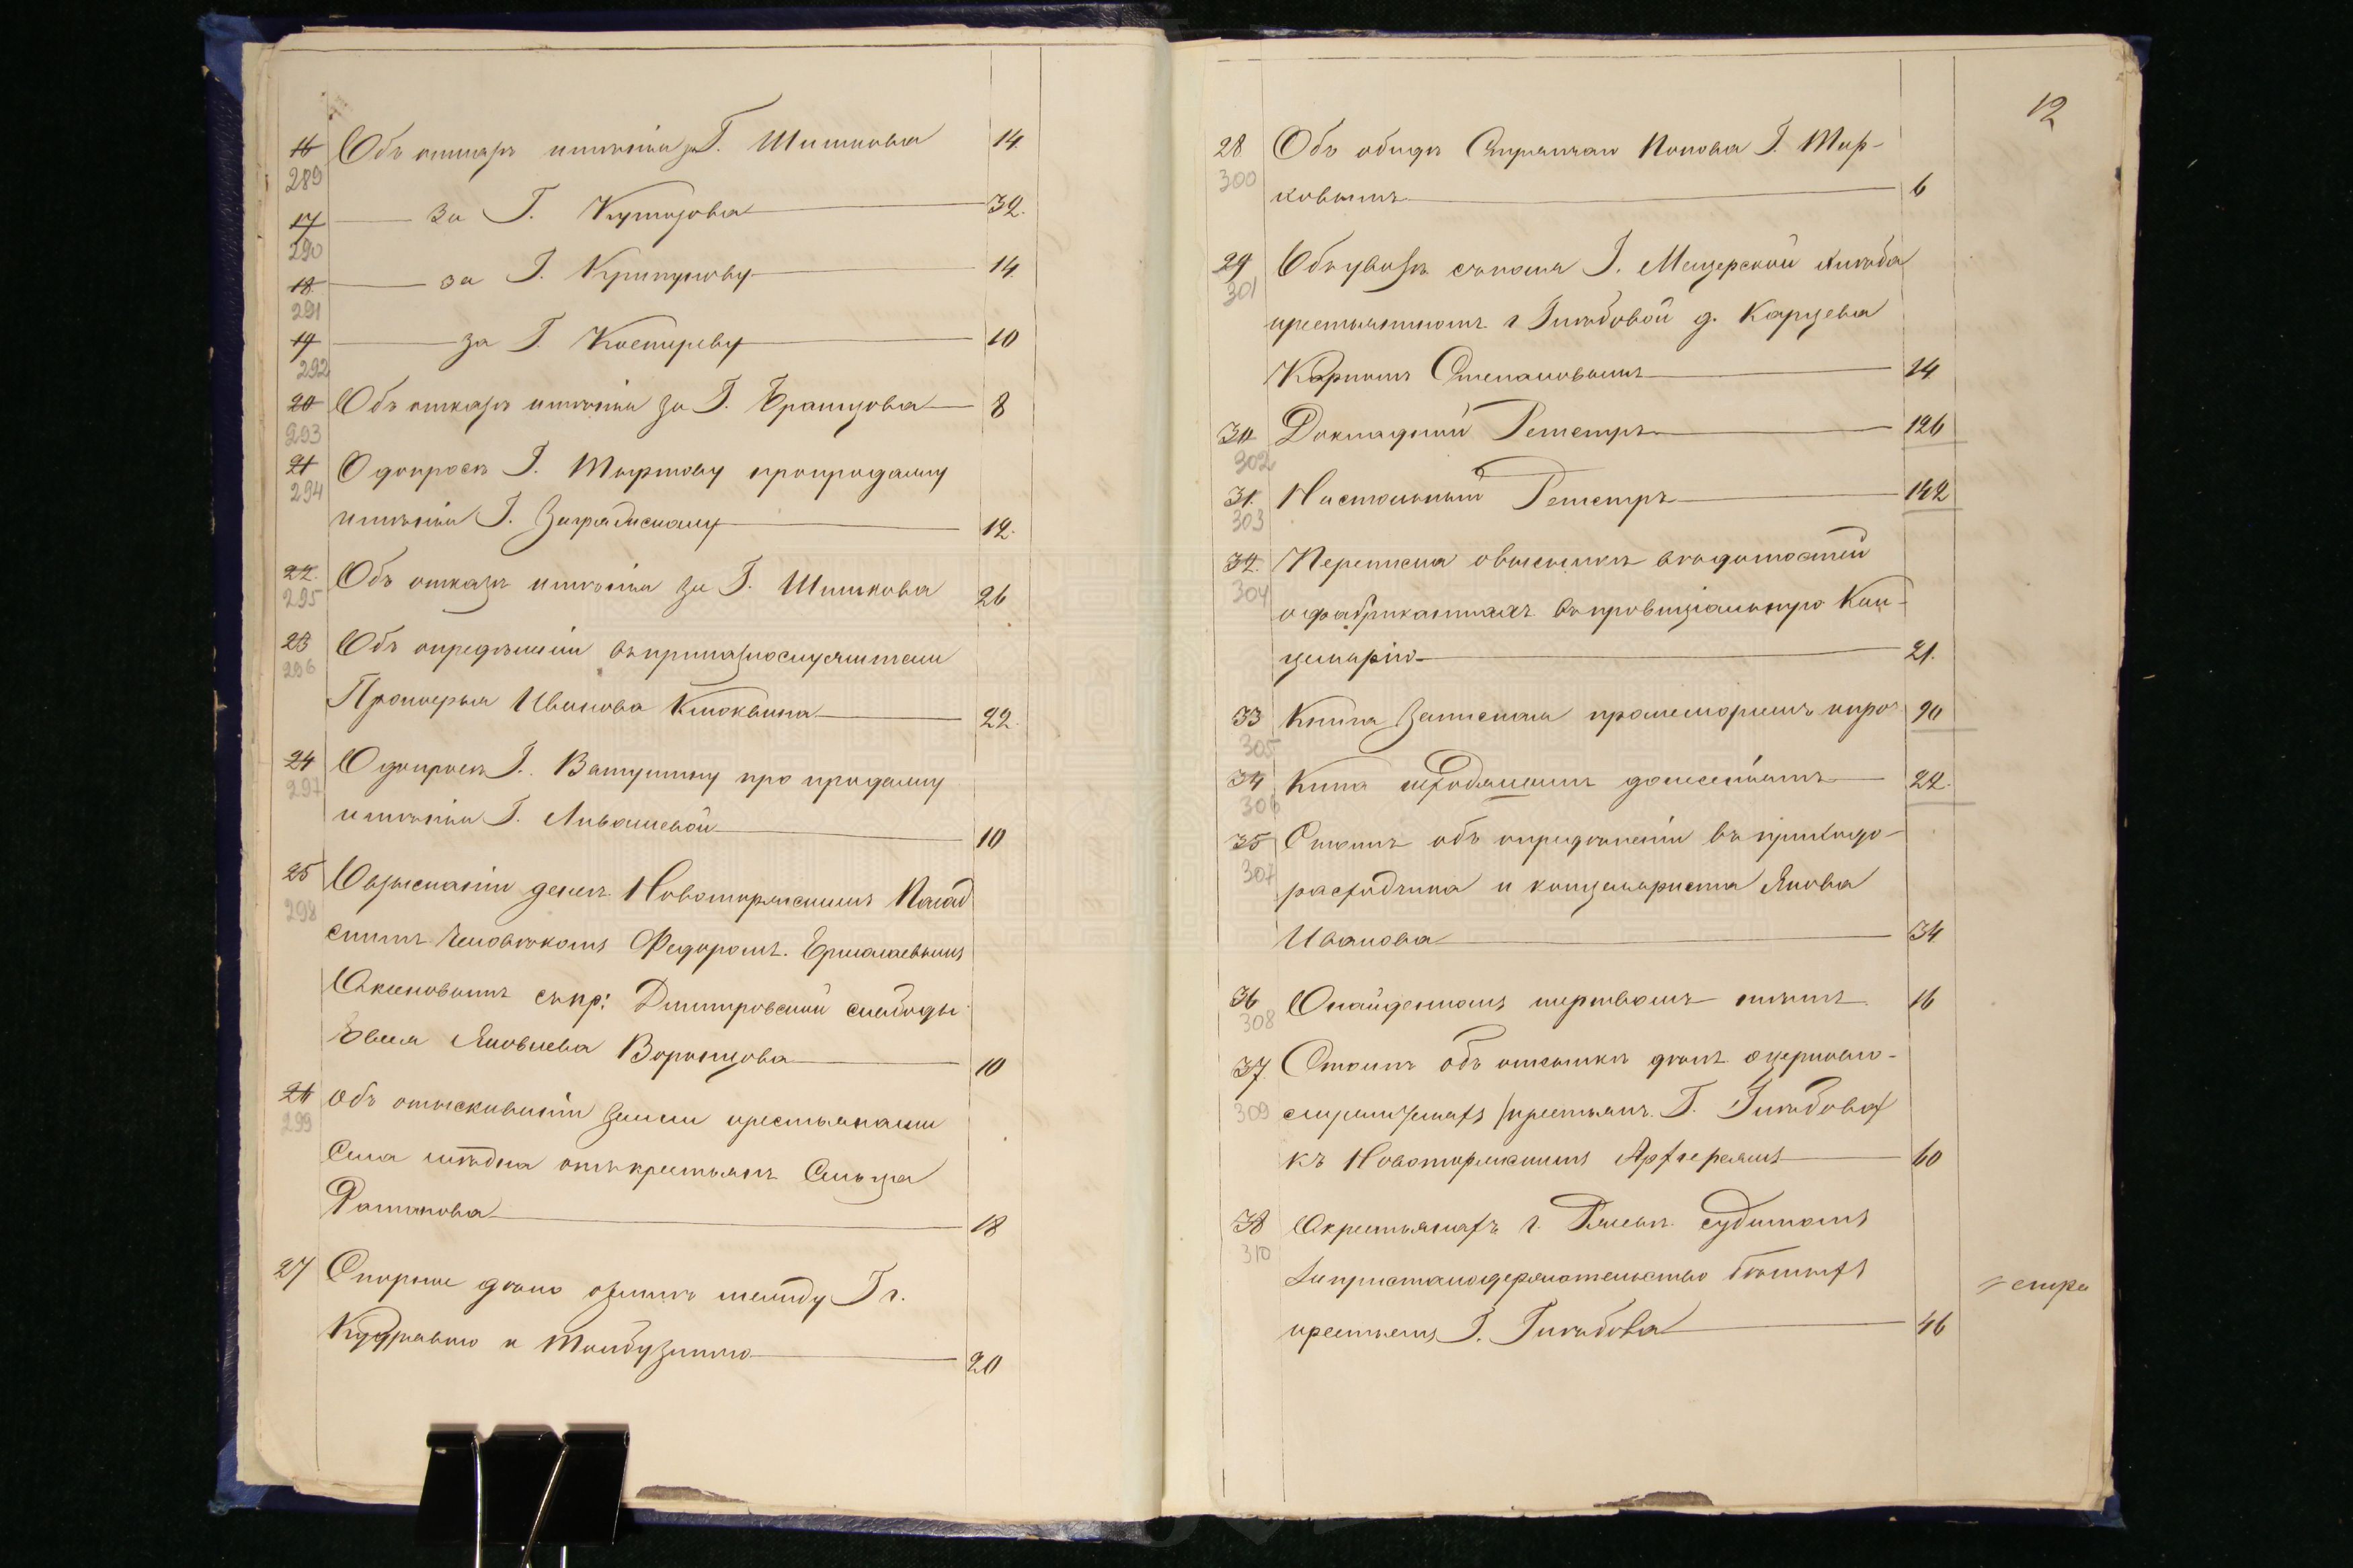 16 Объ отказѣ имѣнія за Г. Шишкова 14.
289
17 за Г. Кутузова 32.
290
18. за Г. Крипунову 14
291
19 за Г. Костыреву 10
292
20 Объ отказѣ имѣнія за Г. Бранцова 8
293
21 О допросѣ Г. Мыртову про продажу
294
имѣнія Г. Заградскому 12.
22. Объ отказѣ имѣнія за Г. Шишкова 26
295
23 Объ опредѣленіи въ приказнослужители
296
Прокофья Иванова Клоквина 22.
24 О допросѣ Г. Ватутину про продажу
297
имѣнія Г. Ливашевой 10
25 О взысканіи денегъ Новоторжскимъ Посад
298
скимъ человѣкомъ Федоромъ Ермолаевымъ
Аксеновымъ съ кр: Дмитровской слободы
Евсея Яковлева Воронцова 10
26 Объ отыскиваніи земли крестьянами
299
Села отъ крестьянъ Сельца
Раменова 18
27 Спорное дѣло о землѣ между Гг.
и 20
12
28 Объ обидѣ Стряпчаго Попова Г. Мер-
300
ковымъ 6
29 Объ увозѣ съ поля Г. Мещерской хлѣба
301
крестьяниномъ г Глѣбовой д. Карцева
Карпомъ Степановымъ 24
30 Докладной Регестръ 126
302
31. Настольный Регестръ 142
303
32. Переписка о высылкѣ вѣдомостей
304
о фабрикантахъ въ провинціальную Кан-
целярію 21.
33 Книга Записная промеморіямъ и про 90
305
34 Книга исходящимъ доношеніямъ 22.
306
35 Стопа объ опредѣленіи въ приходо-
307
расходчика и концеляриста Якова
Иванова 34
36 О найденномъ мертвомъ тѣлѣ 16
308
37. Стопа объ отсылкѣ дѣлъ о церковно-
309
служителяхъ /крестьянъ Г. Глѣбова/
къ Новоторжскимъ Архіереямъ 60
38 О крестьянахъ г. судимомъ
310
За пристанодержательство бѣглыхъ
крестьянъ Г. Глѣбова 46